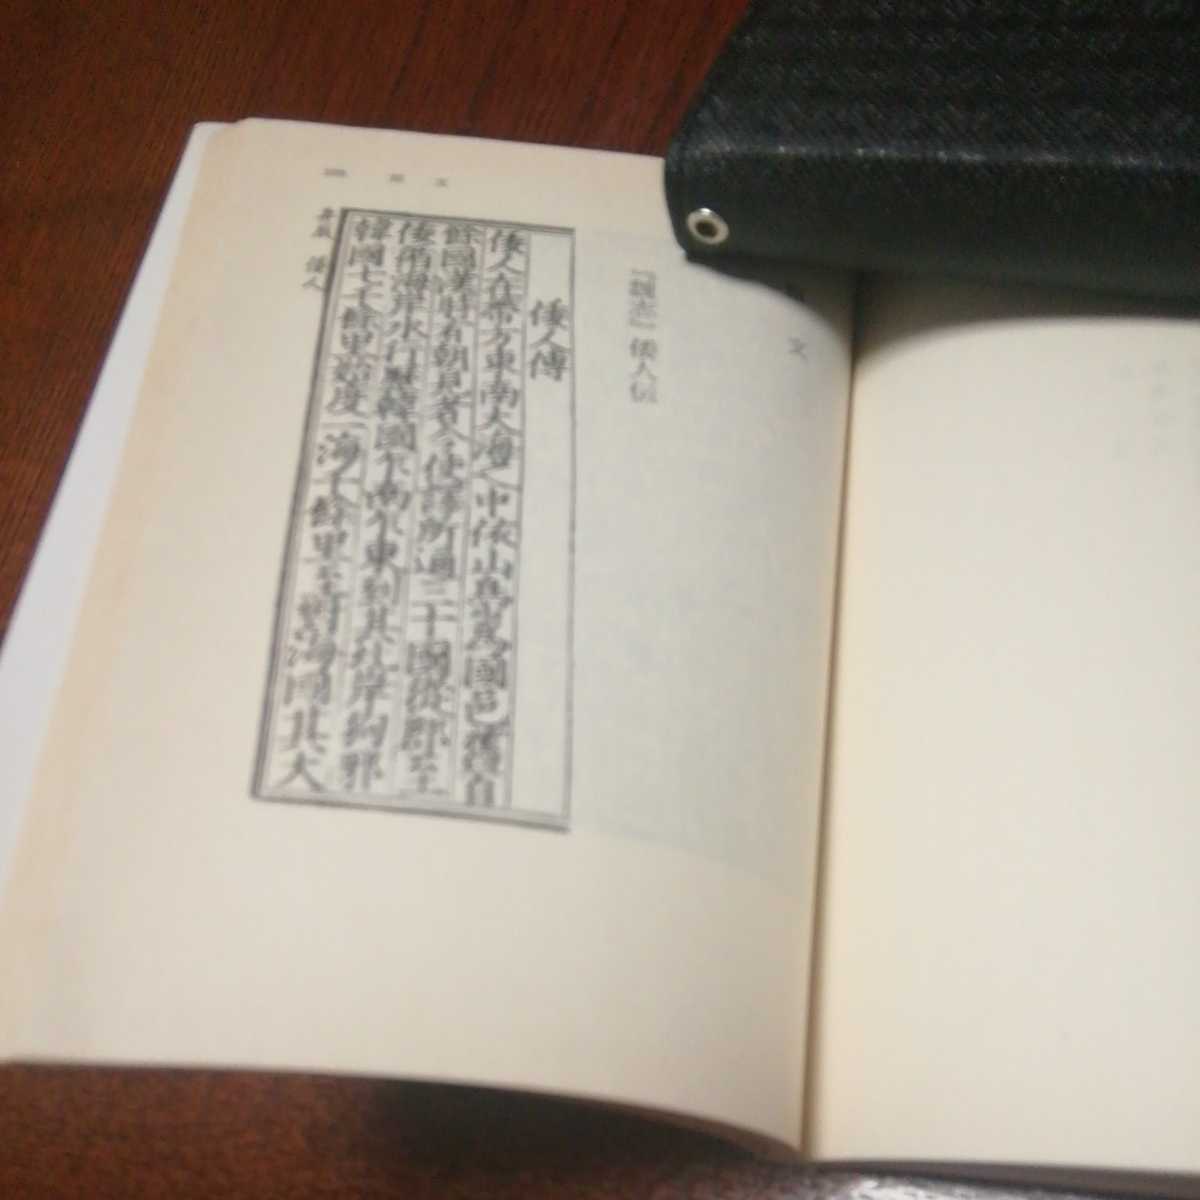 文
『魏志』倭人伝
倭人傳
倭人在帶方東南大海之中依山島爲國邑舊百
餘國漢時有朝見者今使譯所通三十國從郡至
倭循海岸水行歷韓國乍南乍東到其北岸狗邪
韓國七千餘里始度一海千餘里至對海國其大
弁辰 倭人